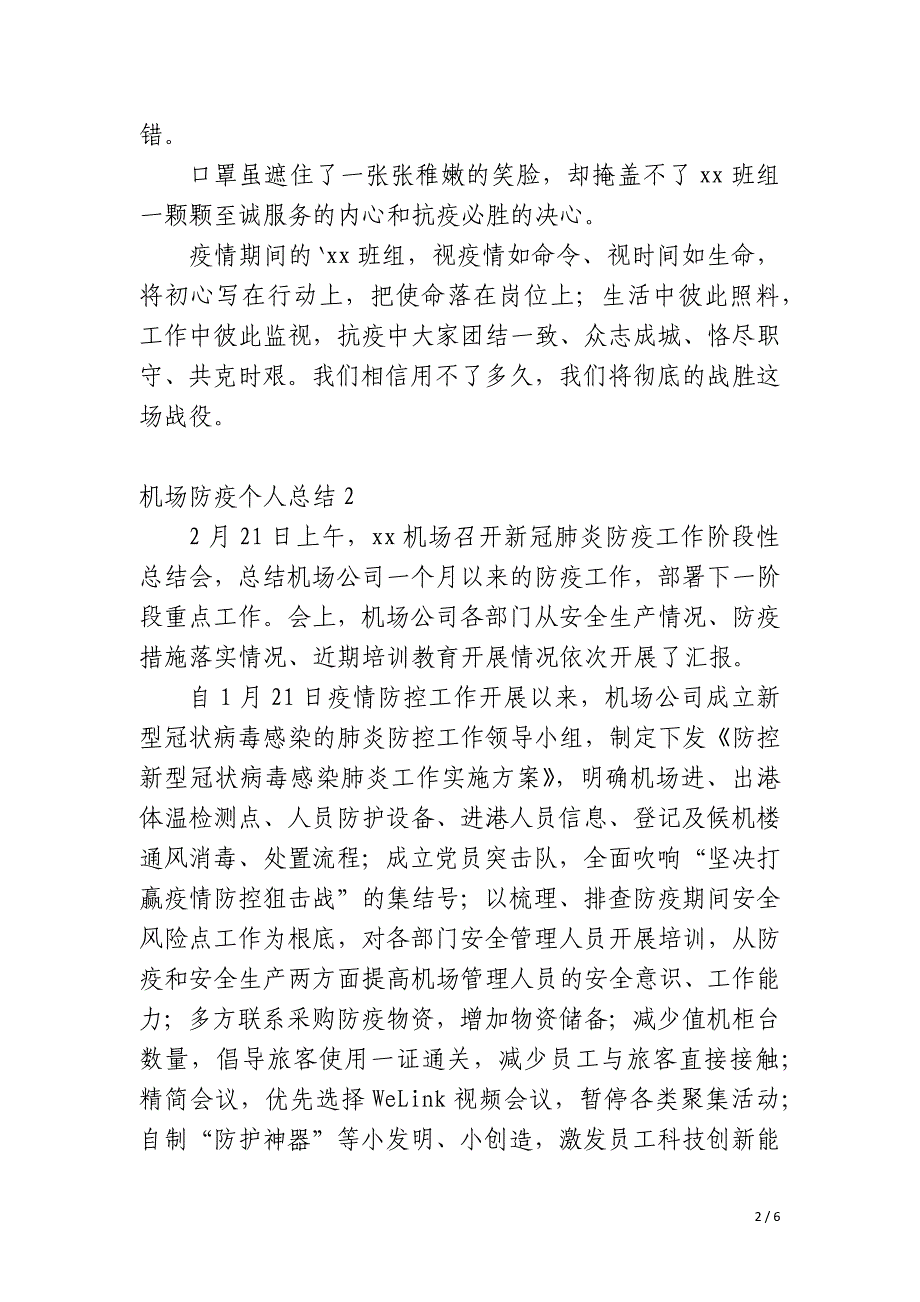 错。
口罩虽遮住了一张张稚嫩的笑脸，却掩盖不了 xx 班组
一颗颗至诚服务的内心和抗疫必胜的决心。
疫情期间的`xx 班组，视疫情如命令、视时间如生命，
将初心写在行动上，把使命落在岗位上；生活中彼此照料，
工作中彼此监视，抗疫中大家团结一致、众志成城、恪尽职
守、共克时艰。我们相信用不了多久，我们将彻底的战胜这
场战役。
机场防疫个人总结 2
2 月 21 日上午，xx 机场召开新冠肺炎防疫工作阶段性
总结会，总结机场公司一个月以来的防疫工作，部署下一阶
段重点工作。会上，机场公司各部门从安全生产情况、防疫
措施落实情况、近期培训教育开展情况依次开展了汇报。
自 1 月 21 日疫情防控工作开展以来，机场公司成立新
型冠状病毒感染的肺炎防控工作领导小组，制定下发《防控
新型冠状病毒感染肺炎工作实施方案》，明确机场进、出港
体温检测点、人员防护设备、进港人员信息、登记及候机楼
通风消毒、处置流程；成立党员突击队，全面吹响“坚决打
赢疫情防控狙击战”的集结号；以梳理、排查防疫期间安全
风险点工作为根底，对各部门安全管理人员开展培训，从防
疫和安全生产两方面提高机场管理人员的安全意识、工作能
力；多方联系采购防疫物资，增加物资储备；减少值机柜台
数量，倡导旅客使用一证通关，减少员工与旅客直接接触；
精简会议，优先选择 WeLink 视频会议，暂停各类聚集活动；
自制“防护神器”等小发明、小创造，激发员工科技创新能
2 / 6